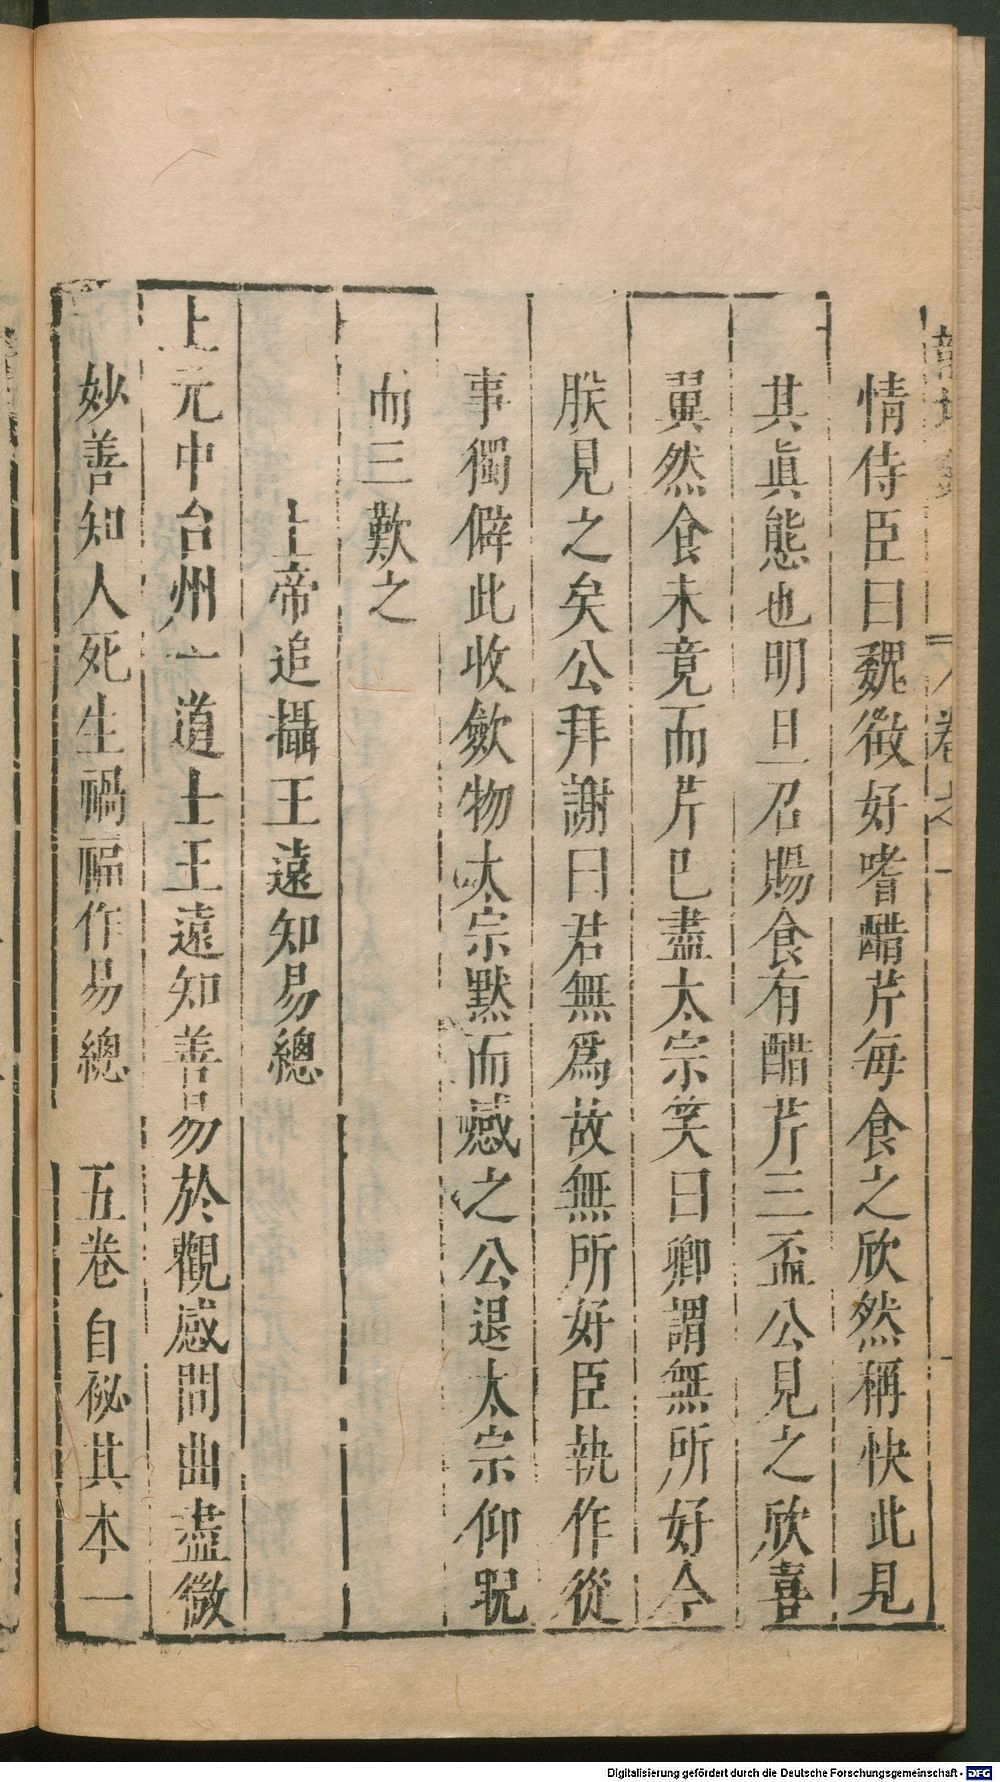 情侍臣曰魏徵好嗜醋芹每食之欣然稱快此見
其眞態也明旦召賜食有醋芹三盃公見之欣喜
翼然食未竟而芹已盡太宗笑曰卿謂無所好今
朕見之矣公拜謝曰君無爲故無所好臣執作從
事獨僻此收斂物太宗默而憾之公退太宗仰睨
而三歎之
上帝追攝王遠知易總
上元中台州一道士王遠知善易於觀感問曲盡微
妙善知人死生禍福作易總 五卷自秘其本一
卷之
Digitalisierung gefördert durch die Deutsche Forschungsgemeinschaft - DFG